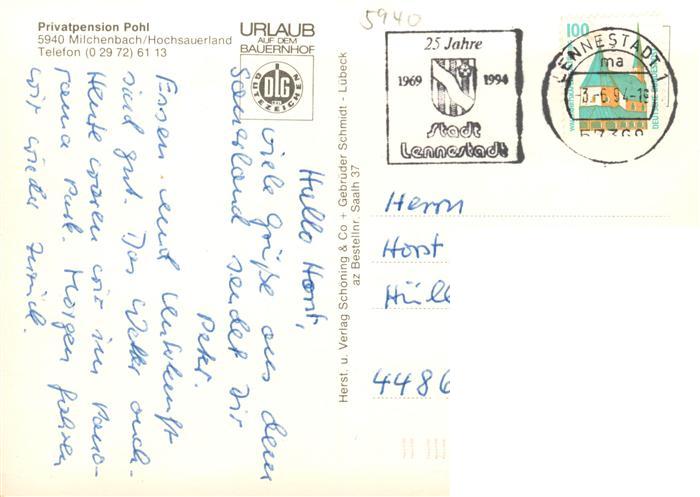 Privatpension Pohl
5940 Milchenbach/Hochsauerland
Telefon (0 29 72) 61 13
URLAUB
AUF DEM
BAUERNHOF
DLG
GÜTEZEICHEN
Hallo Horst,
viele Grüße aus dem
Sauerland sendet Dir
Peter.
Essen und Unterkunft
sind gut. Das Wetter auch.
Heute waren wir im Pano-
rama Park. Morgen fahren
wir wieder zurück.
Herst. u. Verlag Schöning & Co + Gebrüder Schmidt - Lübeck
az Bestellnr. Saalh 37
5940
25 Jahre
1969 1994
Stadt
Lennestadt
100
LENNESTADT 1
ma
-3.-6.94-18
57368
Herrn
Horst
Hüll
4486